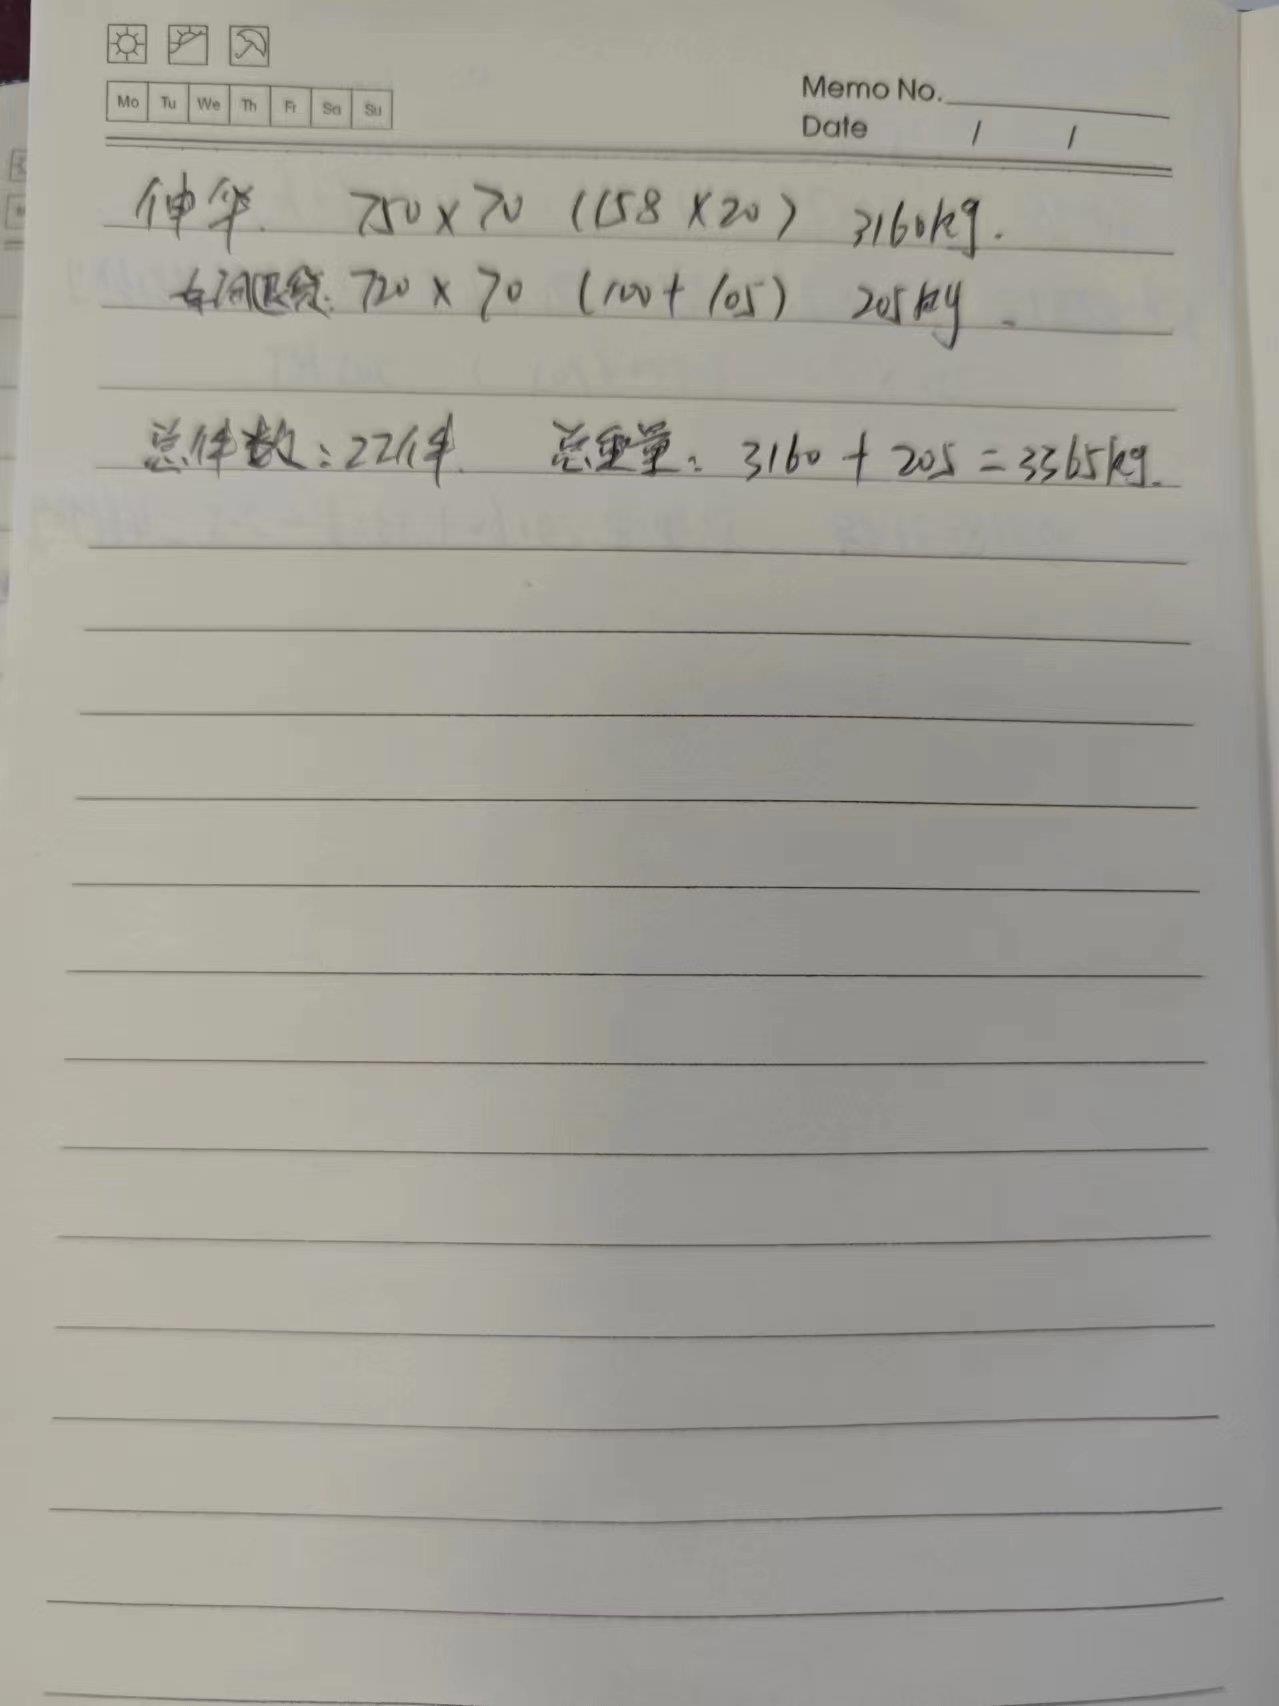 Mo Tu We Th Fr Sa Su
Memo No.
Date / /
伸华. 750×70 (158×20) 3160kg.
720×70 (100+105) 205kg.
总件数:22件. 总重量:3160+205=3365kg.